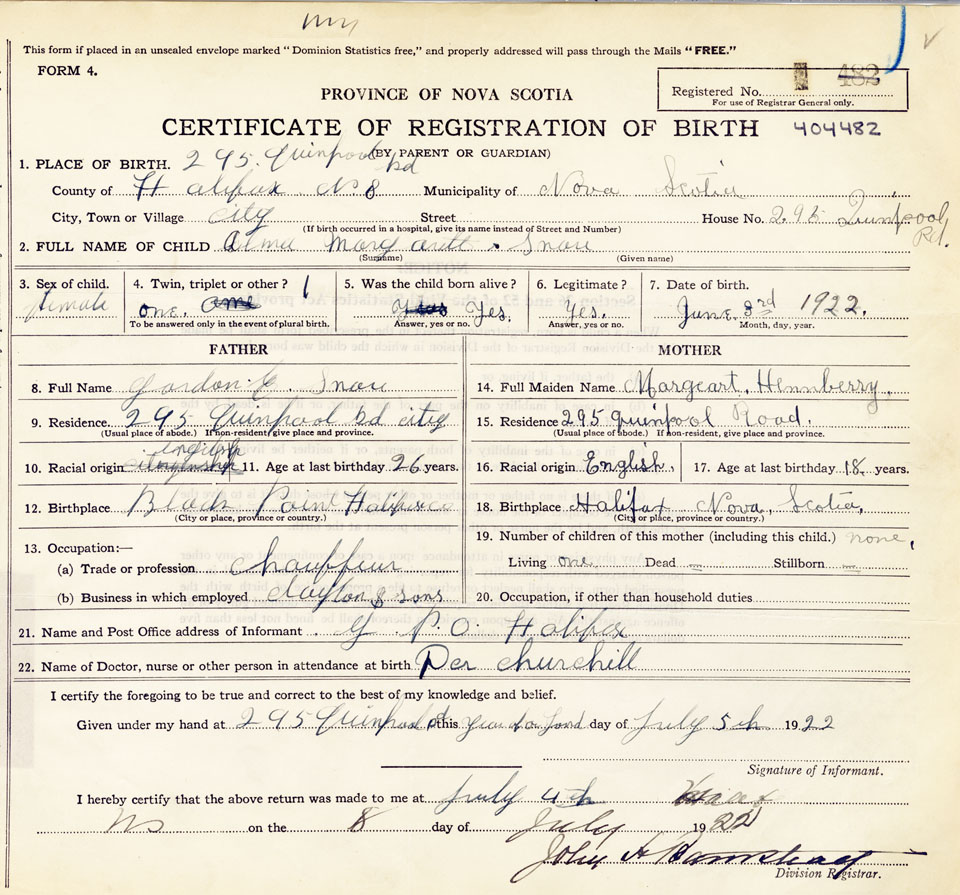 This form if placed in an unsealed envelope marked "Dominion Statistics free," and properly addressed will pass through the Mails "FREE."
FORM 4.
482
Registered No.
For use of Registrar General only.
PROVINCE OF NOVA SCOTIA
CERTIFICATE OF REGISTRATION OF BIRTH 404482
(BY PARENT OR GUARDIAN)
1. PLACE OF BIRTH. 295. Quinpool Rd
County of Halifax No 8 Municipality of Nova Scotia
City, Town or Village city Street House No. 295 Quinpool Rd.
(If birth occurred in a hospital, give its name instead of Street and Number)
2. FULL NAME OF CHILD Alma Margarett Snow
(Surname) (Given name)
3. Sex of child. 4. Twin, triplet or other? 1 5. Was the child born alive? 6. Legitimate? 7. Date of birth.
female one. Yes. Yes. June 3rd 1922.
To be answered only in the event of plural birth. Answer, yes or no. Answer, yes or no. Month, day, year.
FATHER MOTHER
8. Full Name Gordon E. Snow 14. Full Maiden Name Margeart. Hennberry.
9. Residence. 295 Quinpool Rd city 15. Residence 295 Quinpool Road.
(Usual place of abode.) If non-resident, give place and province. (Usual place of abode.) If non-resident, give place and province.
10. Racial origin english 11. Age at last birthday 26 years. 16. Racial origin English. 17. Age at last birthday 18 years.
12. Birthplace Black Point Halifax 18. Birthplace Halifax Nova Scotia.
(City or place, province or country.) (City or place, province or country.)
13. Occupation:— 19. Number of children of this mother (including this child.) none,
(a) Trade or profession chauffeur Living one Dead — Stillborn —
(b) Business in which employed clayton & sons 20. Occupation, if other than household duties
21. Name and Post Office address of Informant G P.O. Halifax
22. Name of Doctor, nurse or other person in attendance at birth Der churchill
I certify the foregoing to be true and correct to the best of my knowledge and belief.
Given under my hand at 295 Quinpool Rd this day of July 5th 1922
Signature of Informant.
I hereby certify that the above return was made to me at July 4th
NS on the 8 day of July 1922
John A
Division Registrar.